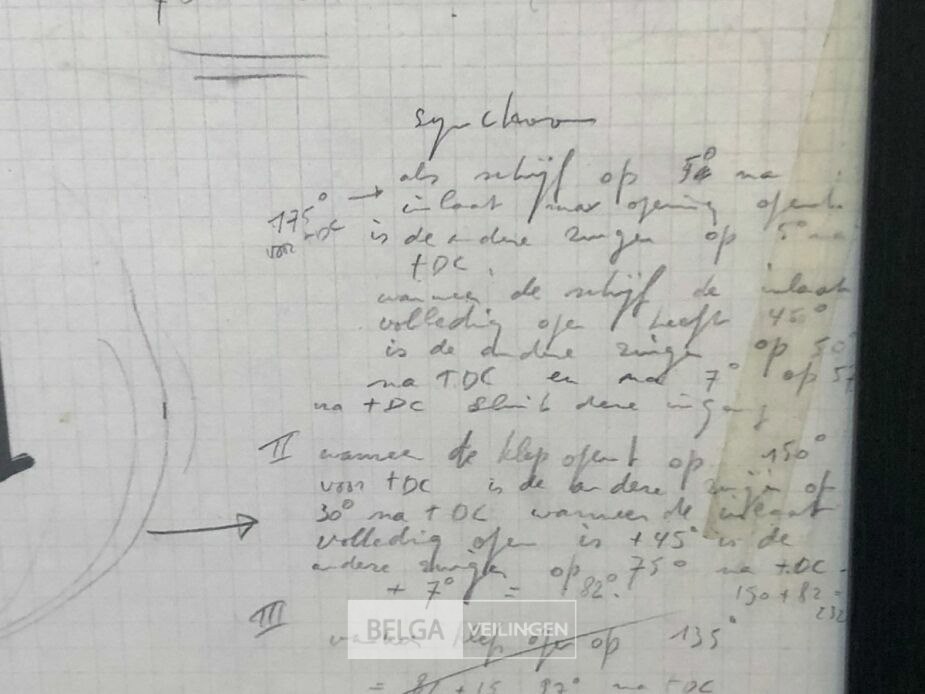 synchroon
als schijf op 5° na
175° → inlaat max opening opent
voor TDC is de andere zuiger op 5° na
TDC.
wanneer de schijf de inlaat
volledig open heeft 45°
is de andere zuiger op 50
na TDC en na 7° op 57
na TDC sluit deze ingang
II wanneer de klep opent op 150°
voor TDC is de andere zuiger op
30° na TDC wanneer de inlaat
volledig open is +45° is de
andere zuiger op 75° na TDC.
+ 7° = 82°. 150 + 82 =
232
III klep open op 135°
= 82 + 15 97° na TDC
BELGA VEILINGEN